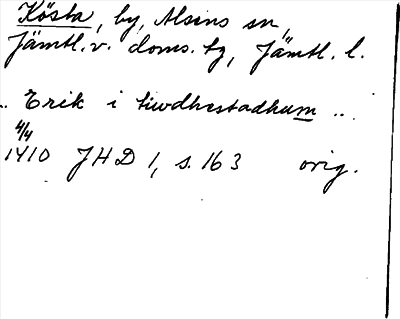 Kösta, by, Alsens sn,
Jämtl. v. doms. tg, Jämtl. l.
.. Erik i tiwdhestadhum ..
4/4
1410 JHD 1, s. 163 orig.